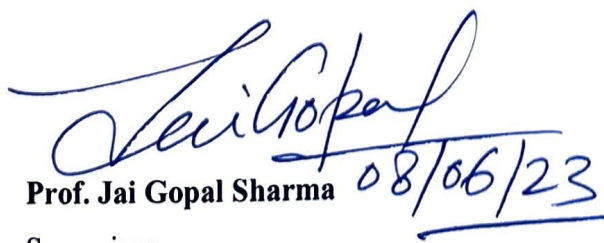 Jai Gopal
Prof. Jai Gopal Sharma 08/06/23